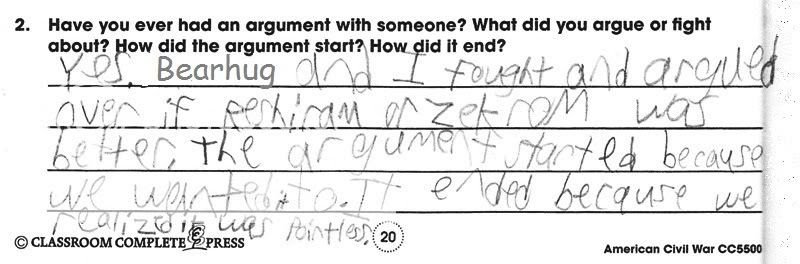 2. Have you ever had an argument with someone? What did you argue or fight
about? How did the argument start? How did it end?
Yes. Bearhug and I fought and argued
over if reshiram or zekrom was
better. The argument started because
we wanted to. It ended because we
realized it was pointless.
© CLASSROOM COMPLETE PRESS 20 American Civil War CC5500